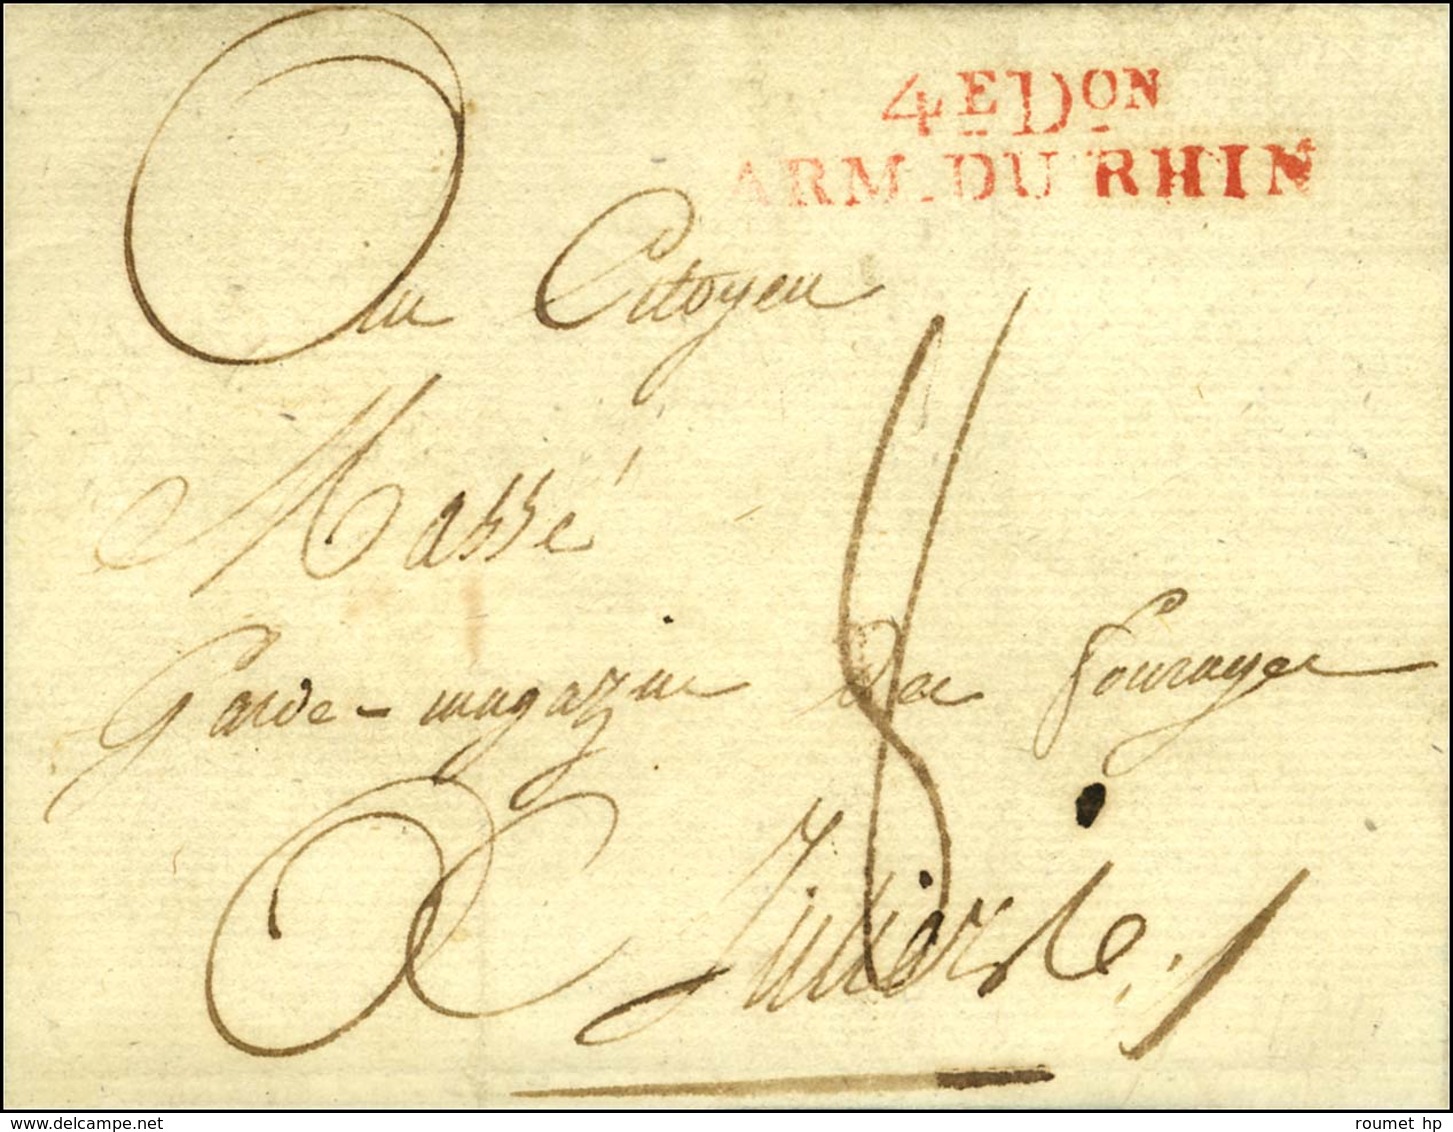 4E DON
ARM. DU RHIN
Au Citoyen
Massé
Garde-magazin des fourages
A Juliers
8
roumet hp